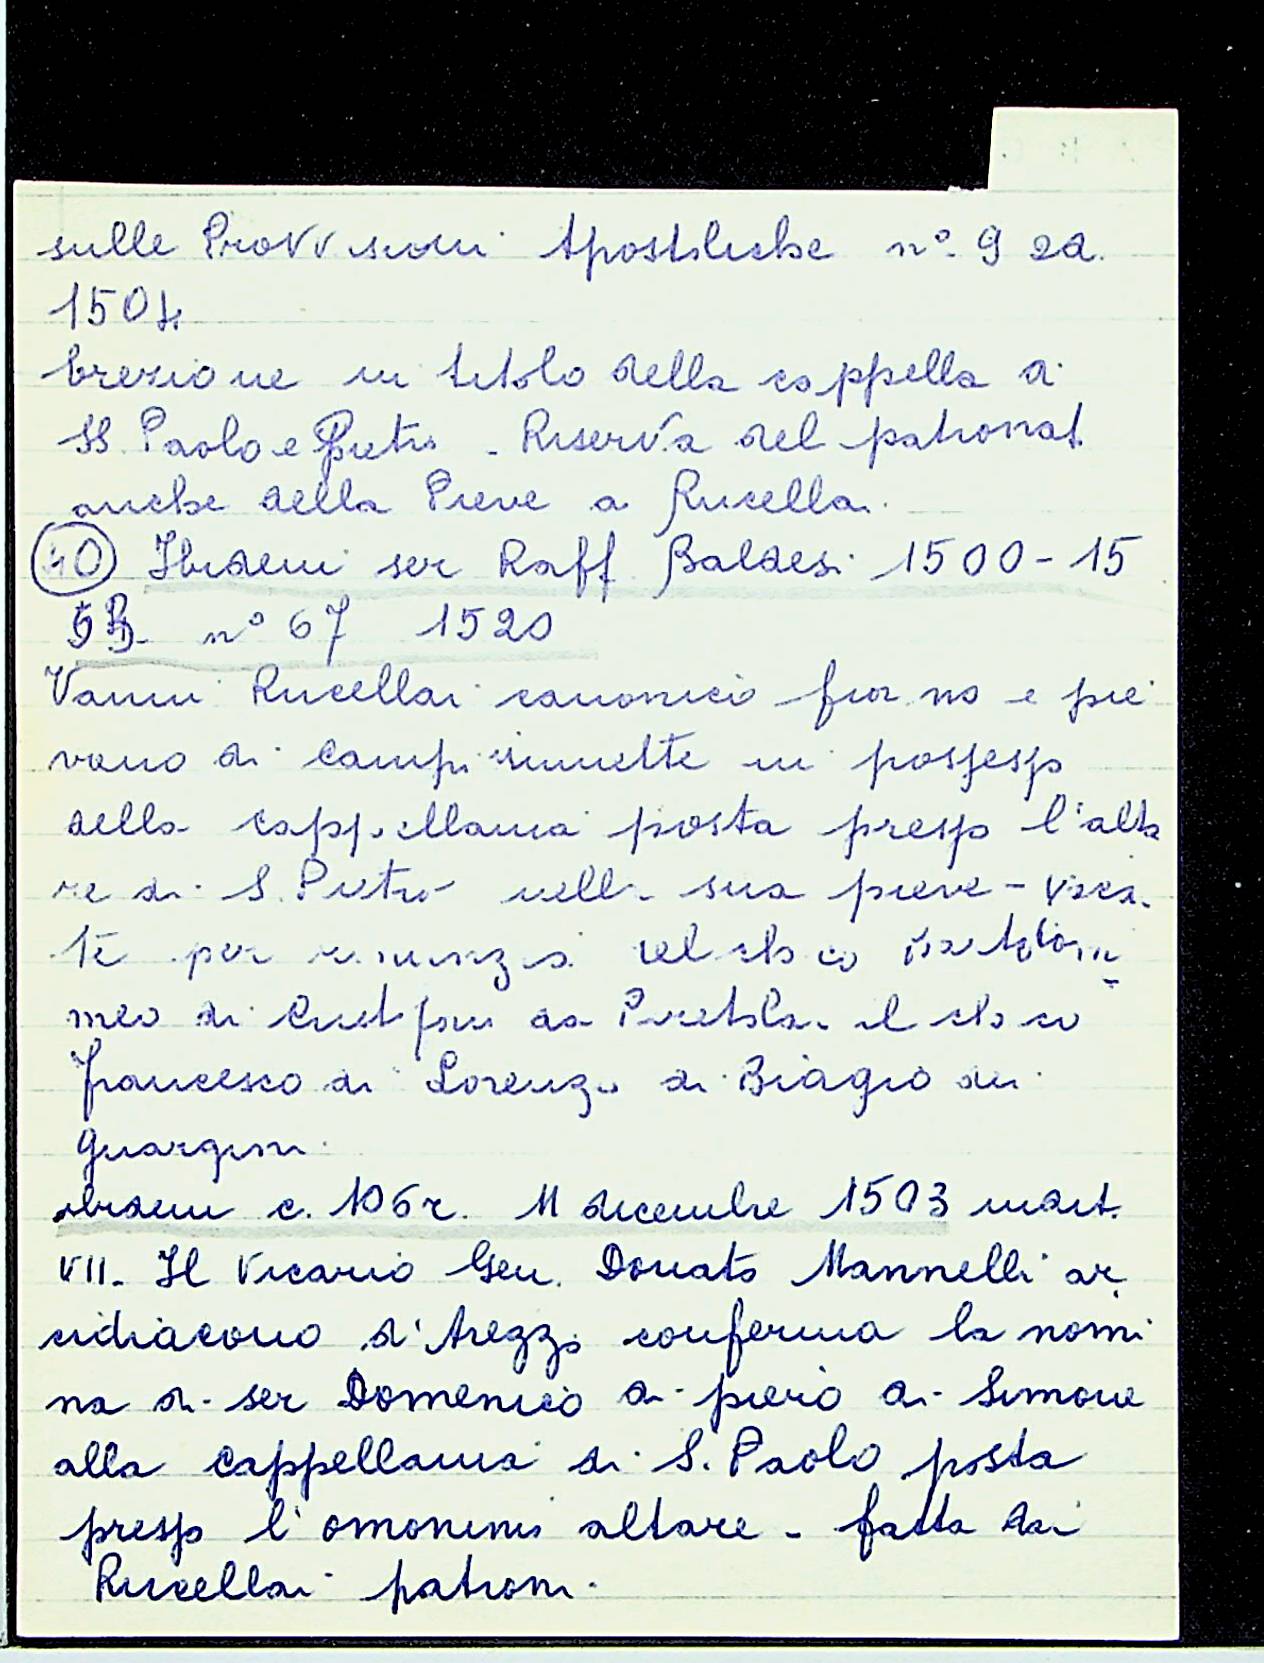 sulle Provvisioni Apostoliche n°. 9 2a.
1504
Erezione in titolo della cappella di
SS. Paolo e Pietro - Riserva del patronat.
anche della Pieve a Rucellai.
40 Ibidem ser Raff. Baldesi 1500-15
n° 67 1520
Vanni Rucellai canonico fior.no e pie
vano di Campi immette in possesso
della cappellania posta presso l'alta
re di S. Pietro nella sua pieve - vaca.
te per rinunzia del ch.co Bartolom
meo di da Peretola. il ch.co
Francesco di Lorenzo di Biagio dei
Guargini.
ibidem c. 106 r. 11 dicembre 1503 indit.
VII. Il Vicario Gen. Donato Mannelli ar
cidiacono d'Arezzo conferma la nomi
na di ser Domenico di piero di Simone
alla Cappellania di S. Paolo posta
presso l'omonimo altare - fatta dai
Rucellai patroni.